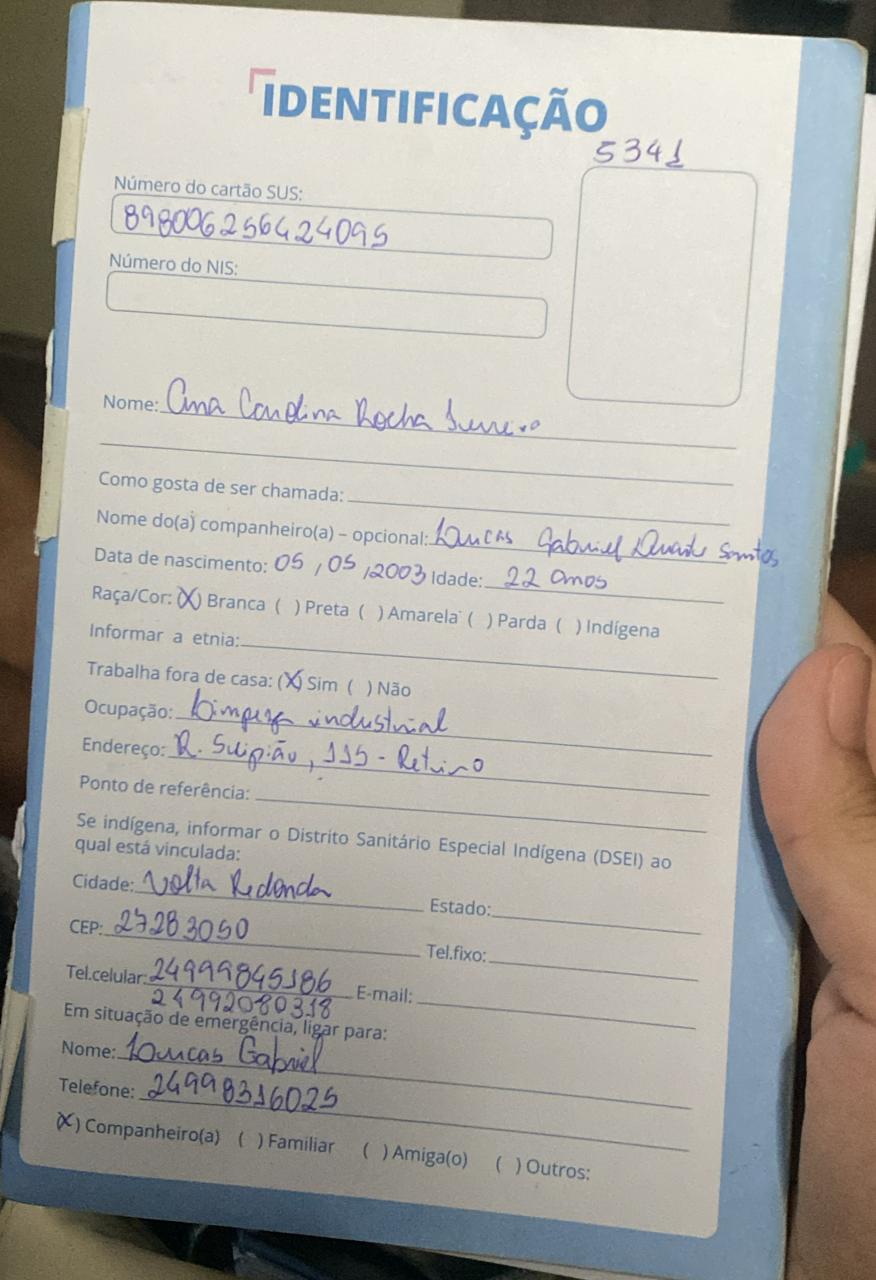 IDENTIFICAÇÃO
5341
Número do cartão SUS:
898006256424095
Número do NIS:
Nome: Ana Carolina Rocha
Como gosta de ser chamada:
Nome do(a) companheiro(a) – opcional: Loucas Gabriel Duarte Santos
Data de nascimento: 05 / 05 / 2003 Idade: 22 anos
Raça/Cor: (X) Branca ( ) Preta ( ) Amarela ( ) Parda ( ) Indígena
Informar a etnia:
Trabalha fora de casa: (X) Sim ( ) Não
Ocupação: Limpeza industrial
Endereço: R. Scipião, 115 - Retiro
Ponto de referência:
Se indígena, informar o Distrito Sanitário Especial Indígena (DSEI) ao
qual está vinculada:
Cidade: Volta Redonda Estado:
CEP: 27283050 Tel.fixo:
Tel.celular: 24999845186 E-mail:
24992080318
Em situação de emergência, ligar para:
Nome: Loucas Gabriel
Telefone: 24998316025
(X) Companheiro(a) ( ) Familiar ( ) Amiga(o) ( ) Outros: